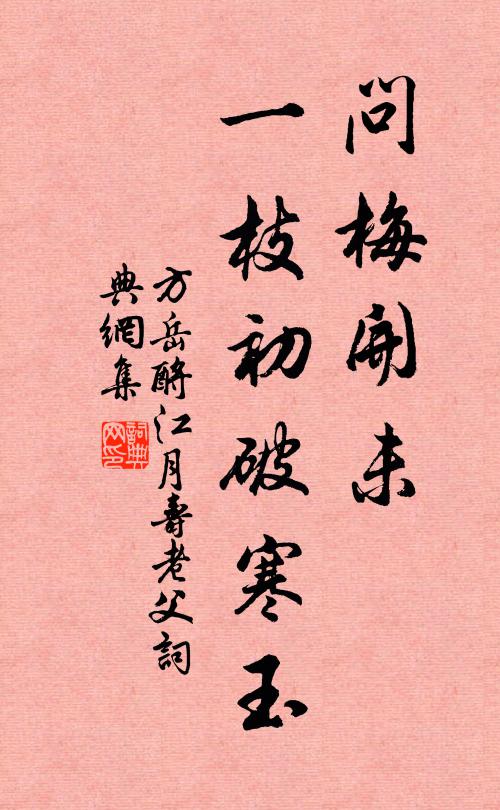 問梅開未
一枝初破寒玉
方岳酹江月壽老父詞
典網集
詞典網印